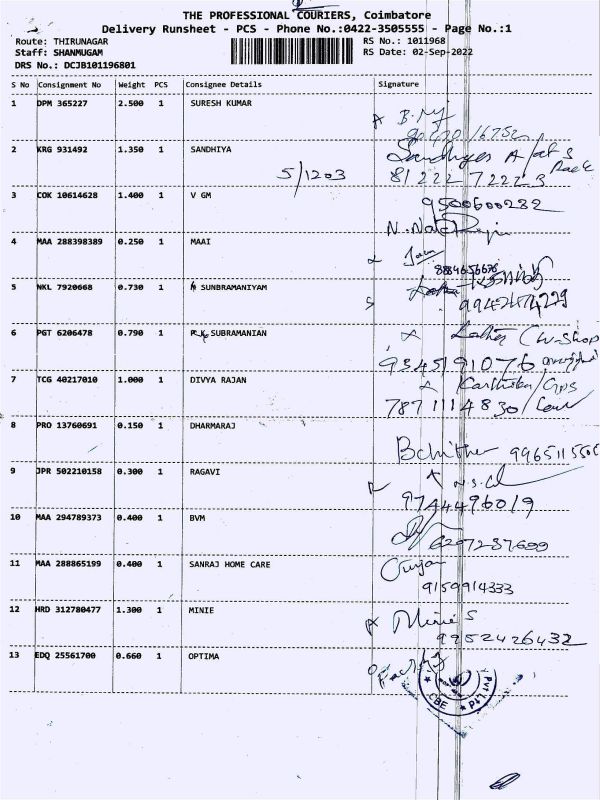 THE PROFESSIONAL COURIERS, Coimbatore
Delivery Runsheet - PCS - Phone No.:0422-3505555 - Page No.:1
Route: THIRUNAGAR RS No.: 1011968
Staff: SHANMUGAM RS Date: 02-Sep-2022
DRS No.: DCJB101196801
S No Consignment No Weight PCS Consignee Details Signature
1 DPM 365227 2.500 1 SURESH KUMAR
2 KRG 931492 1.350 1 SANDHIYA
5/1203 81222 72223
3 COK 10614628 1.400 1 V GM 9500600282
4 MAA 288398389 0.250 1 MAAI
8884656678
5 NKL 7920668 0.730 1 SUNBRAMANIYAM
6 PGT 6206478 0.790 1 SUBRAMANIAN
9345191076
7 TCG 40217010 1.000 1 DIVYA RAJAN
7871114830
8 PRO 13760691 0.150 1 DHARMARAJ
9 JPR 502210158 0.300 1 RAGAVI
9744496019
10 MAA 294789373 0.400 1 BVM
6297287699
11 MAA 288865199 0.400 1 SANRAJ HOME CARE
9159914333
12 HRD 312780477 1.300 1 MINIE Minie S
9952426432
13 EDQ 25561700 0.660 1 OPTIMA
CBE * Pvt Ltd